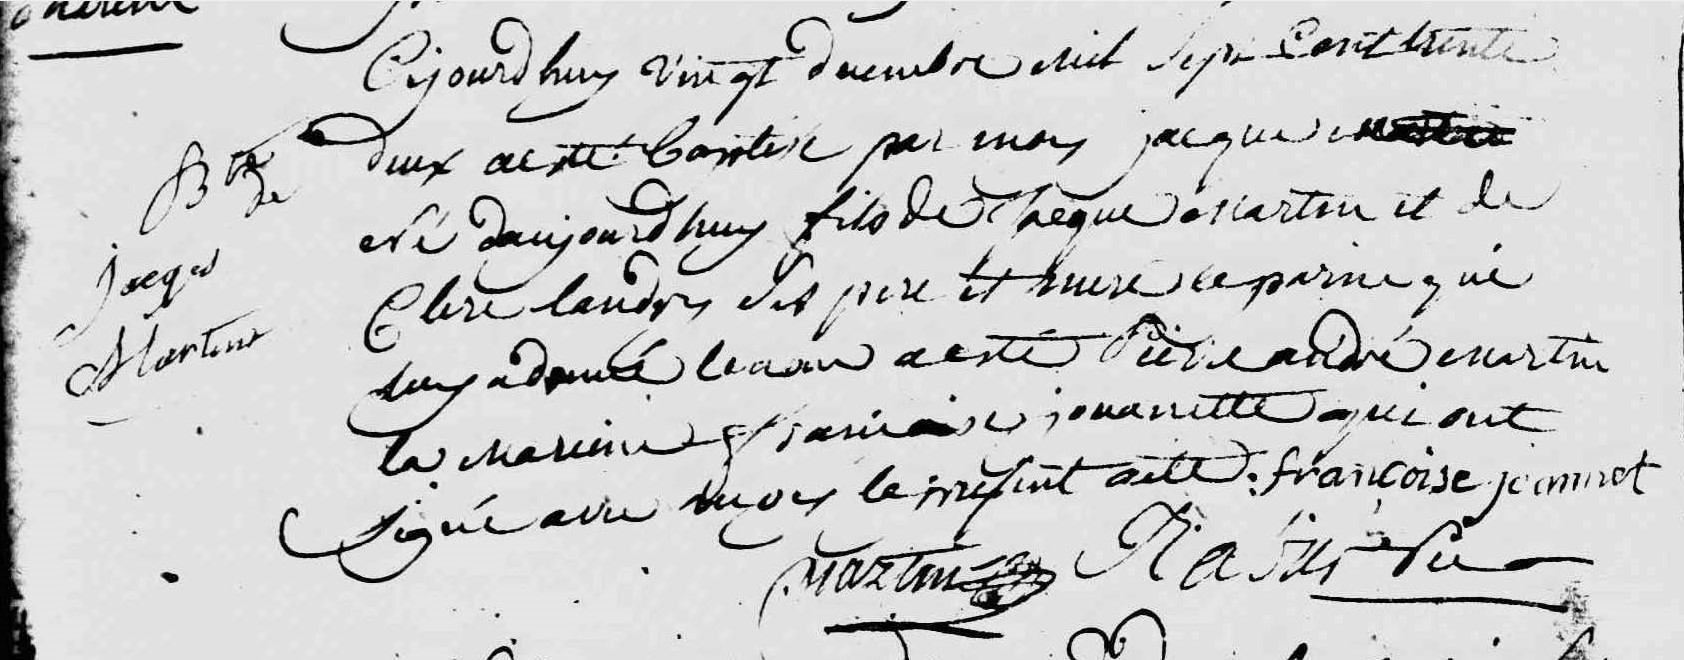 Cejourdhuy vingt decembre mil sept cent trente
B.me de
Jacques
Martin
deux a esté batisé par moy jacque
né daujourdhuy fils de Jacque Martin et de
Clere landry ses pere et mere le parin qui
luy a donné le nom a esté Pierre andré martin
la marine francoise jouanette qui ont
signé avec moy le present acte. françoise jeannet
martin